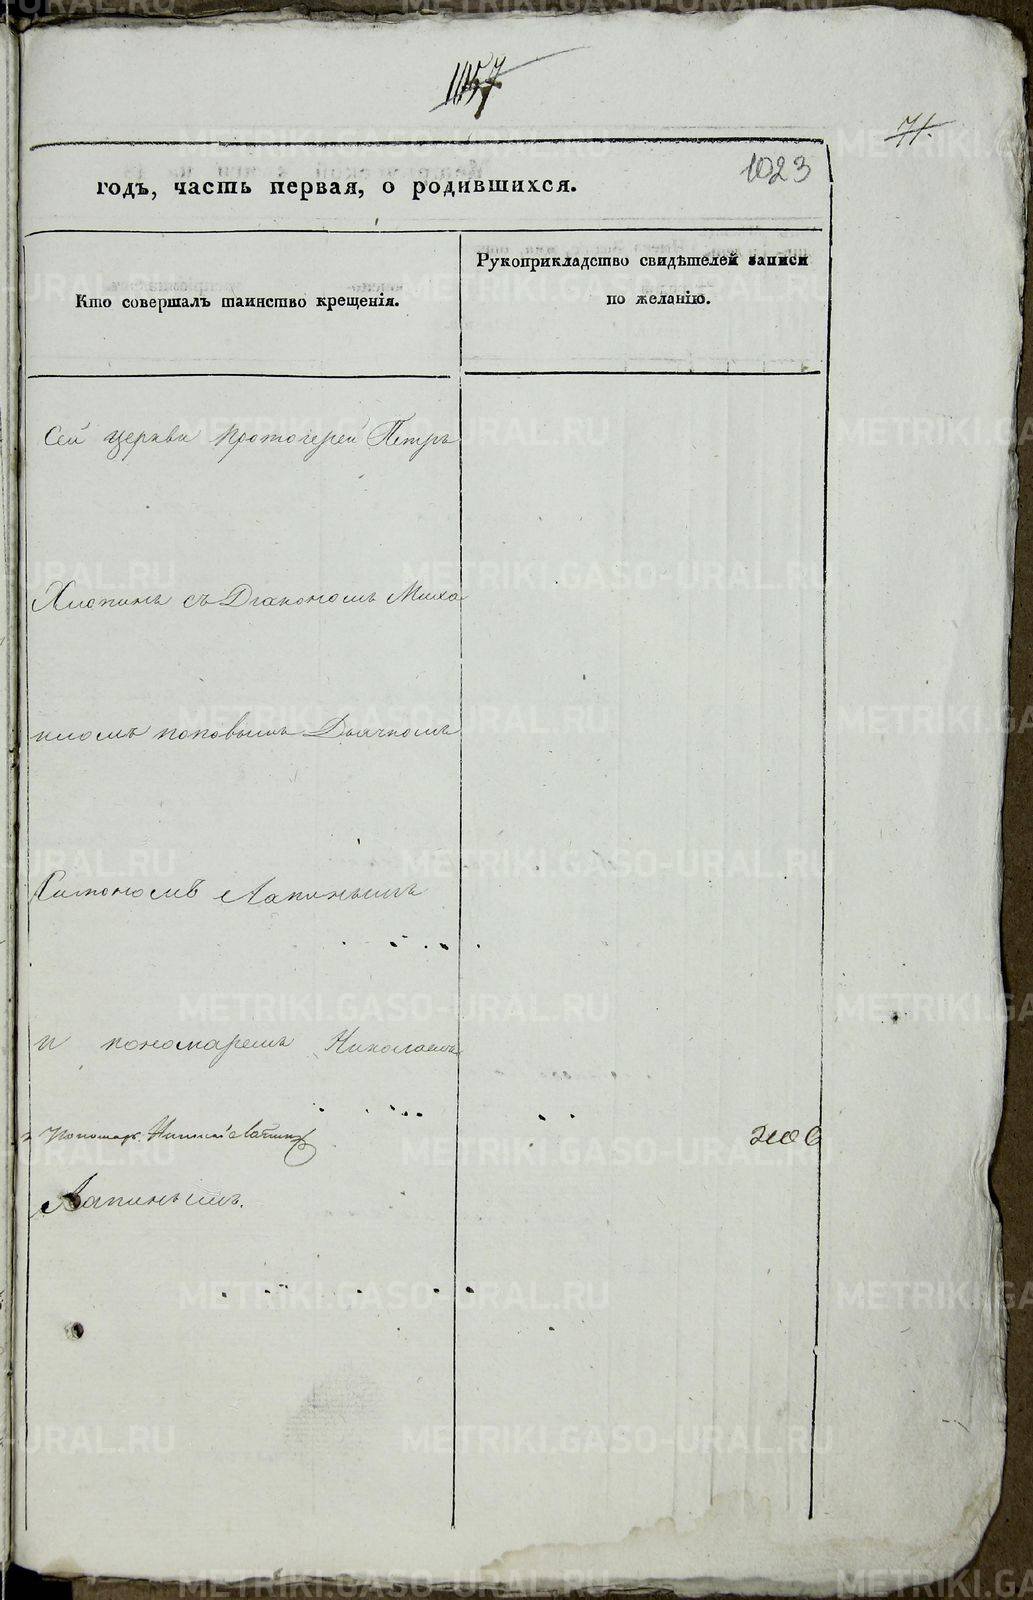 1057
71.
1023
годъ, часть первая, о родившихся.
Кто совершалъ таинство крещенія.
Рукоприкладство свидѣтелей записи
по желанію.
Сей церкви Протоіерей Петръ
Хлопинъ съ Діакономъ Миха
иломъ поповымъ Дьячкомъ
Симономъ Лапинымъ
и пономаремъ Николаемъ
Пономарь Николай
Лапинымъ.
METRIKI.GASO-URAL.RU